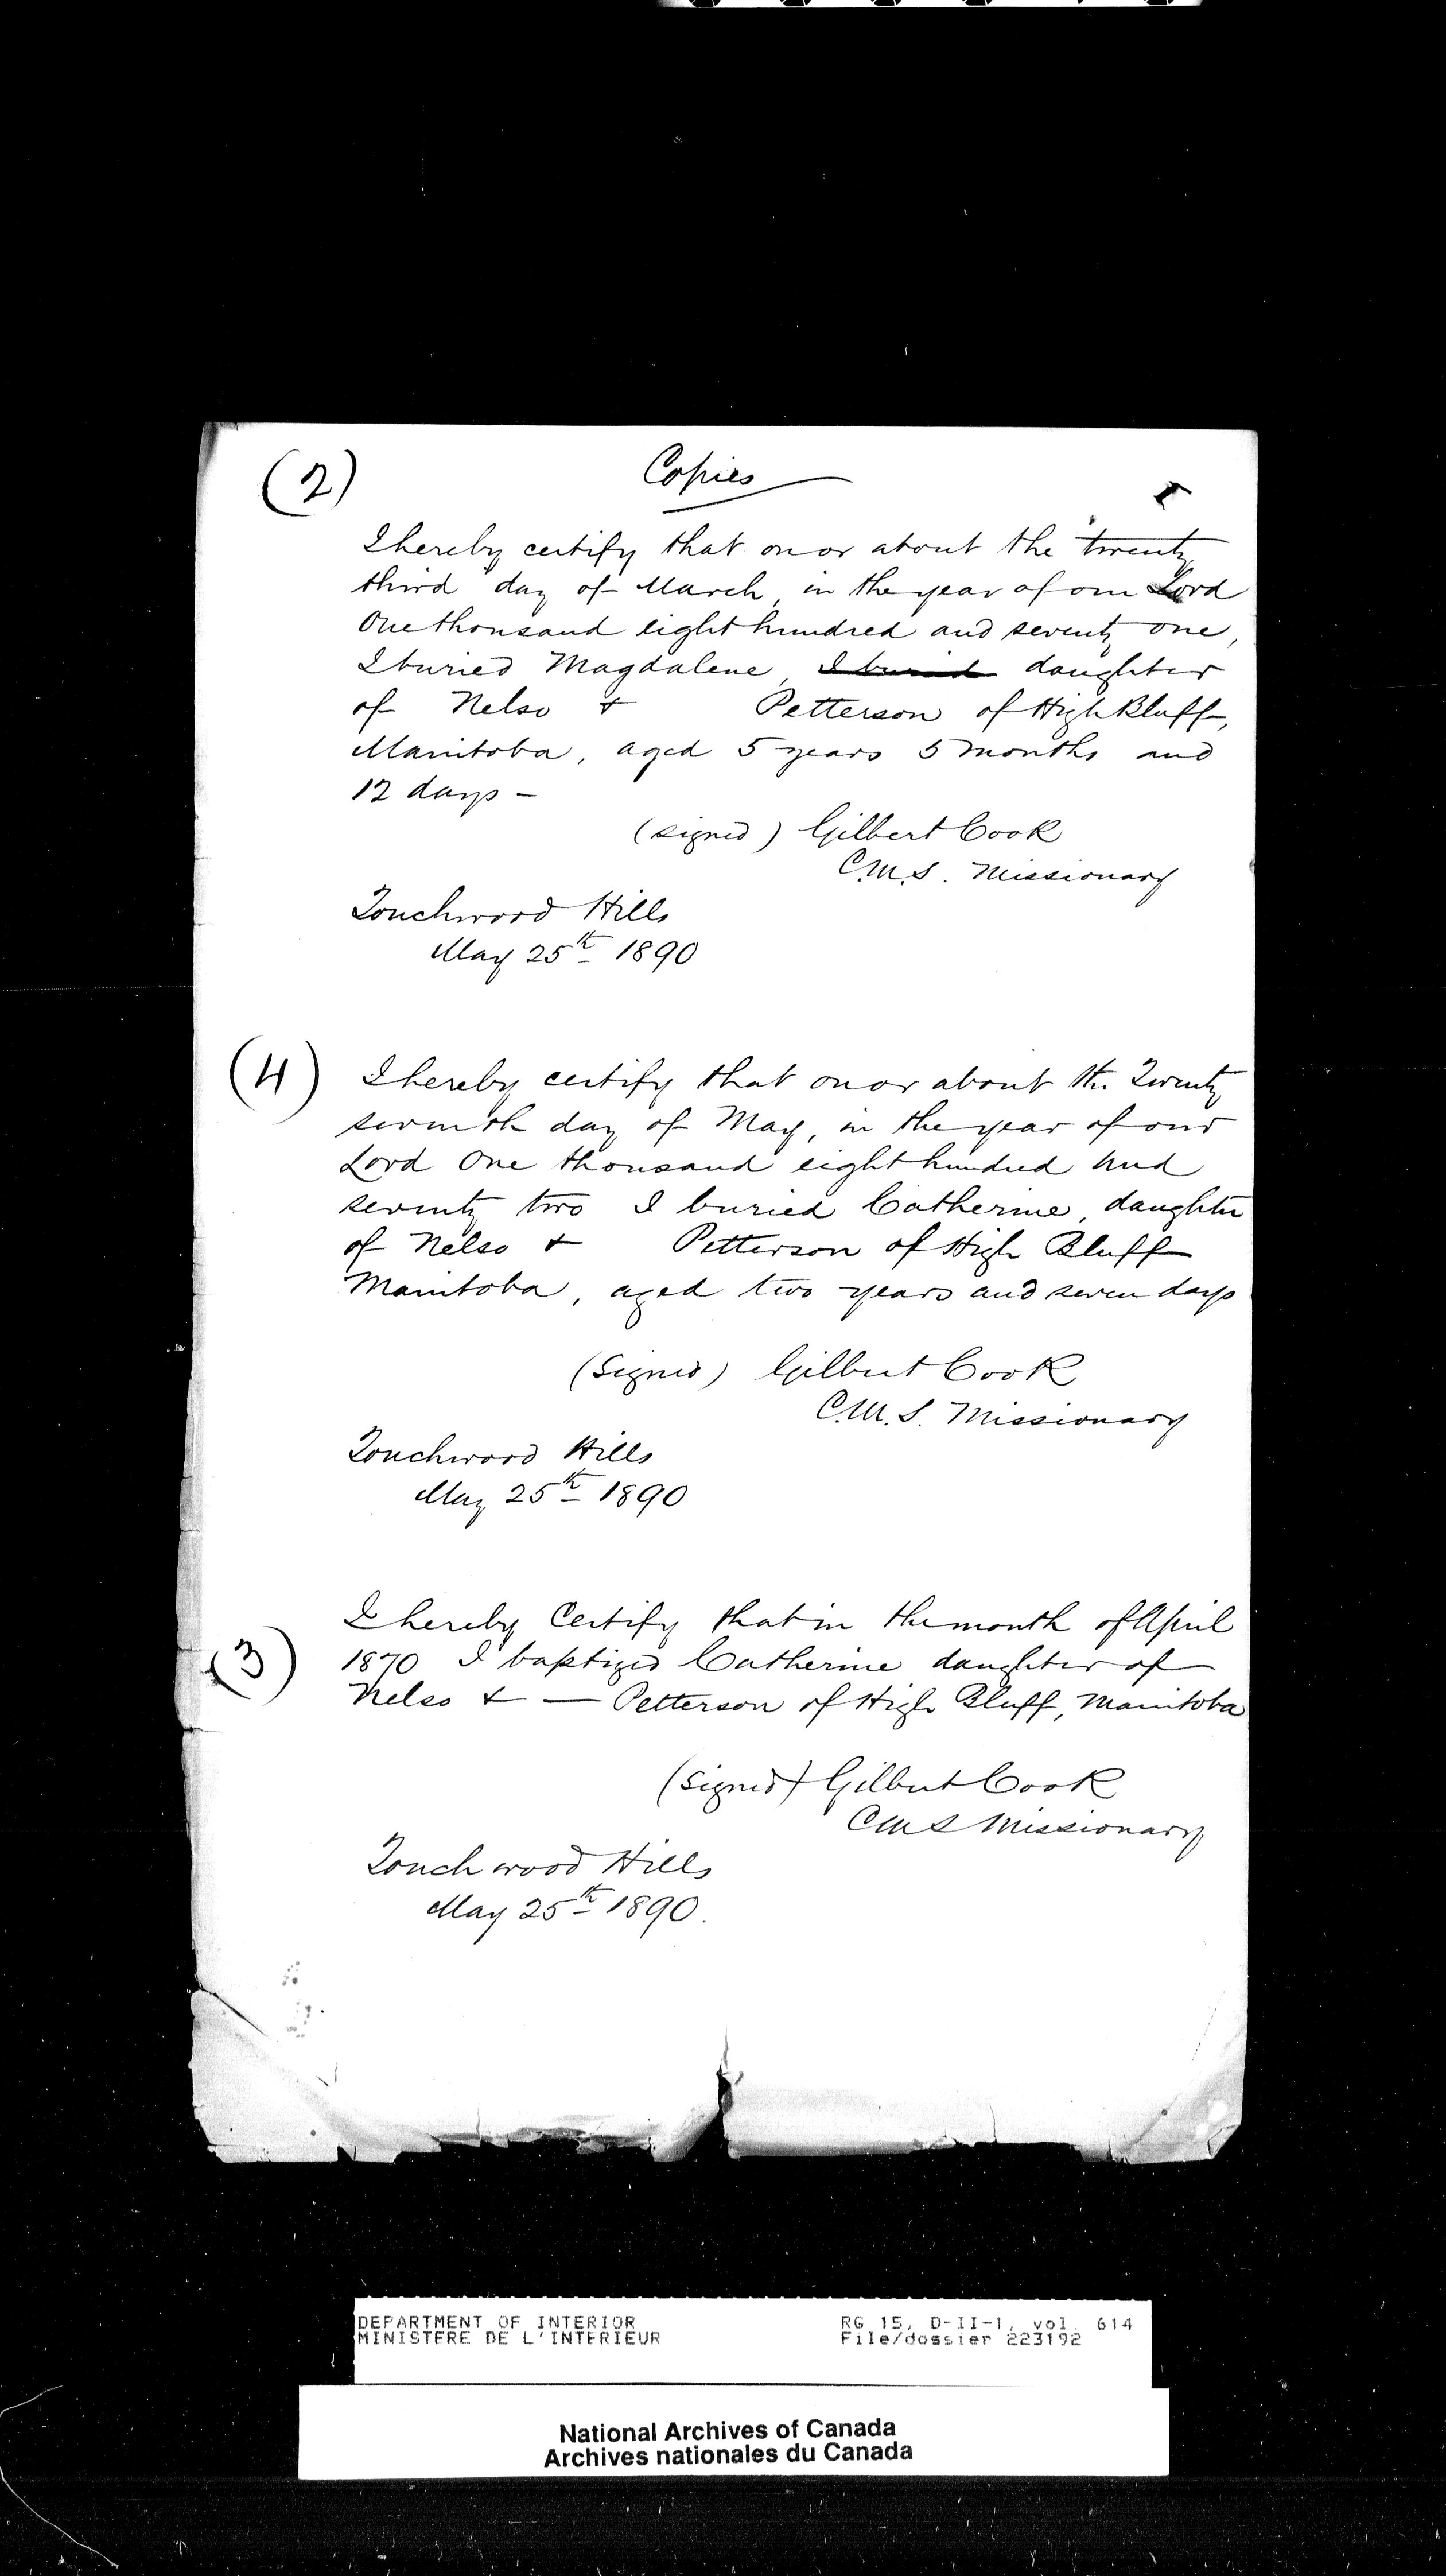 (2)
Copies
I hereby certify that on or about the twenty
third day of March, in the year of our Lord
One thousand eight hundred and seventy one,
I buried Magdalene, I buried daughter
of Nelso & Petterson of High Bluff,
Manitoba, aged 5 years 5 months and
12 days –
(signed) Gilbert Cook
C.M.S. Missionary
Touchwood Hills
May 25th 1890
(4)
I hereby certify that on or about the Twenty
seventh day of May, in the year of our
Lord One thousand eight hundred and
seventy two I buried Catherine, daughter
of Nelso & Petterson of High Bluff
Manitoba, aged two years and seven days
(Signed) Gilbert Cook
C.M.S. Missionary
Touchwood Hills
May 25th 1890
(3)
I hereby Certify that in the month of April
1870 I baptized Catherine daughter of
Nelso & — Petterson of High Bluff, Manitoba
(Signed) Gilbert Cook
CMS Missionary
Touchwood Hills
May 25th 1890.
DEPARTMENT OF INTERIOR
MINISTERE DE L'INTERIEUR
RG 15, D-II-1, vol. 614
File/dossier 223192
National Archives of Canada
Archives nationales du Canada